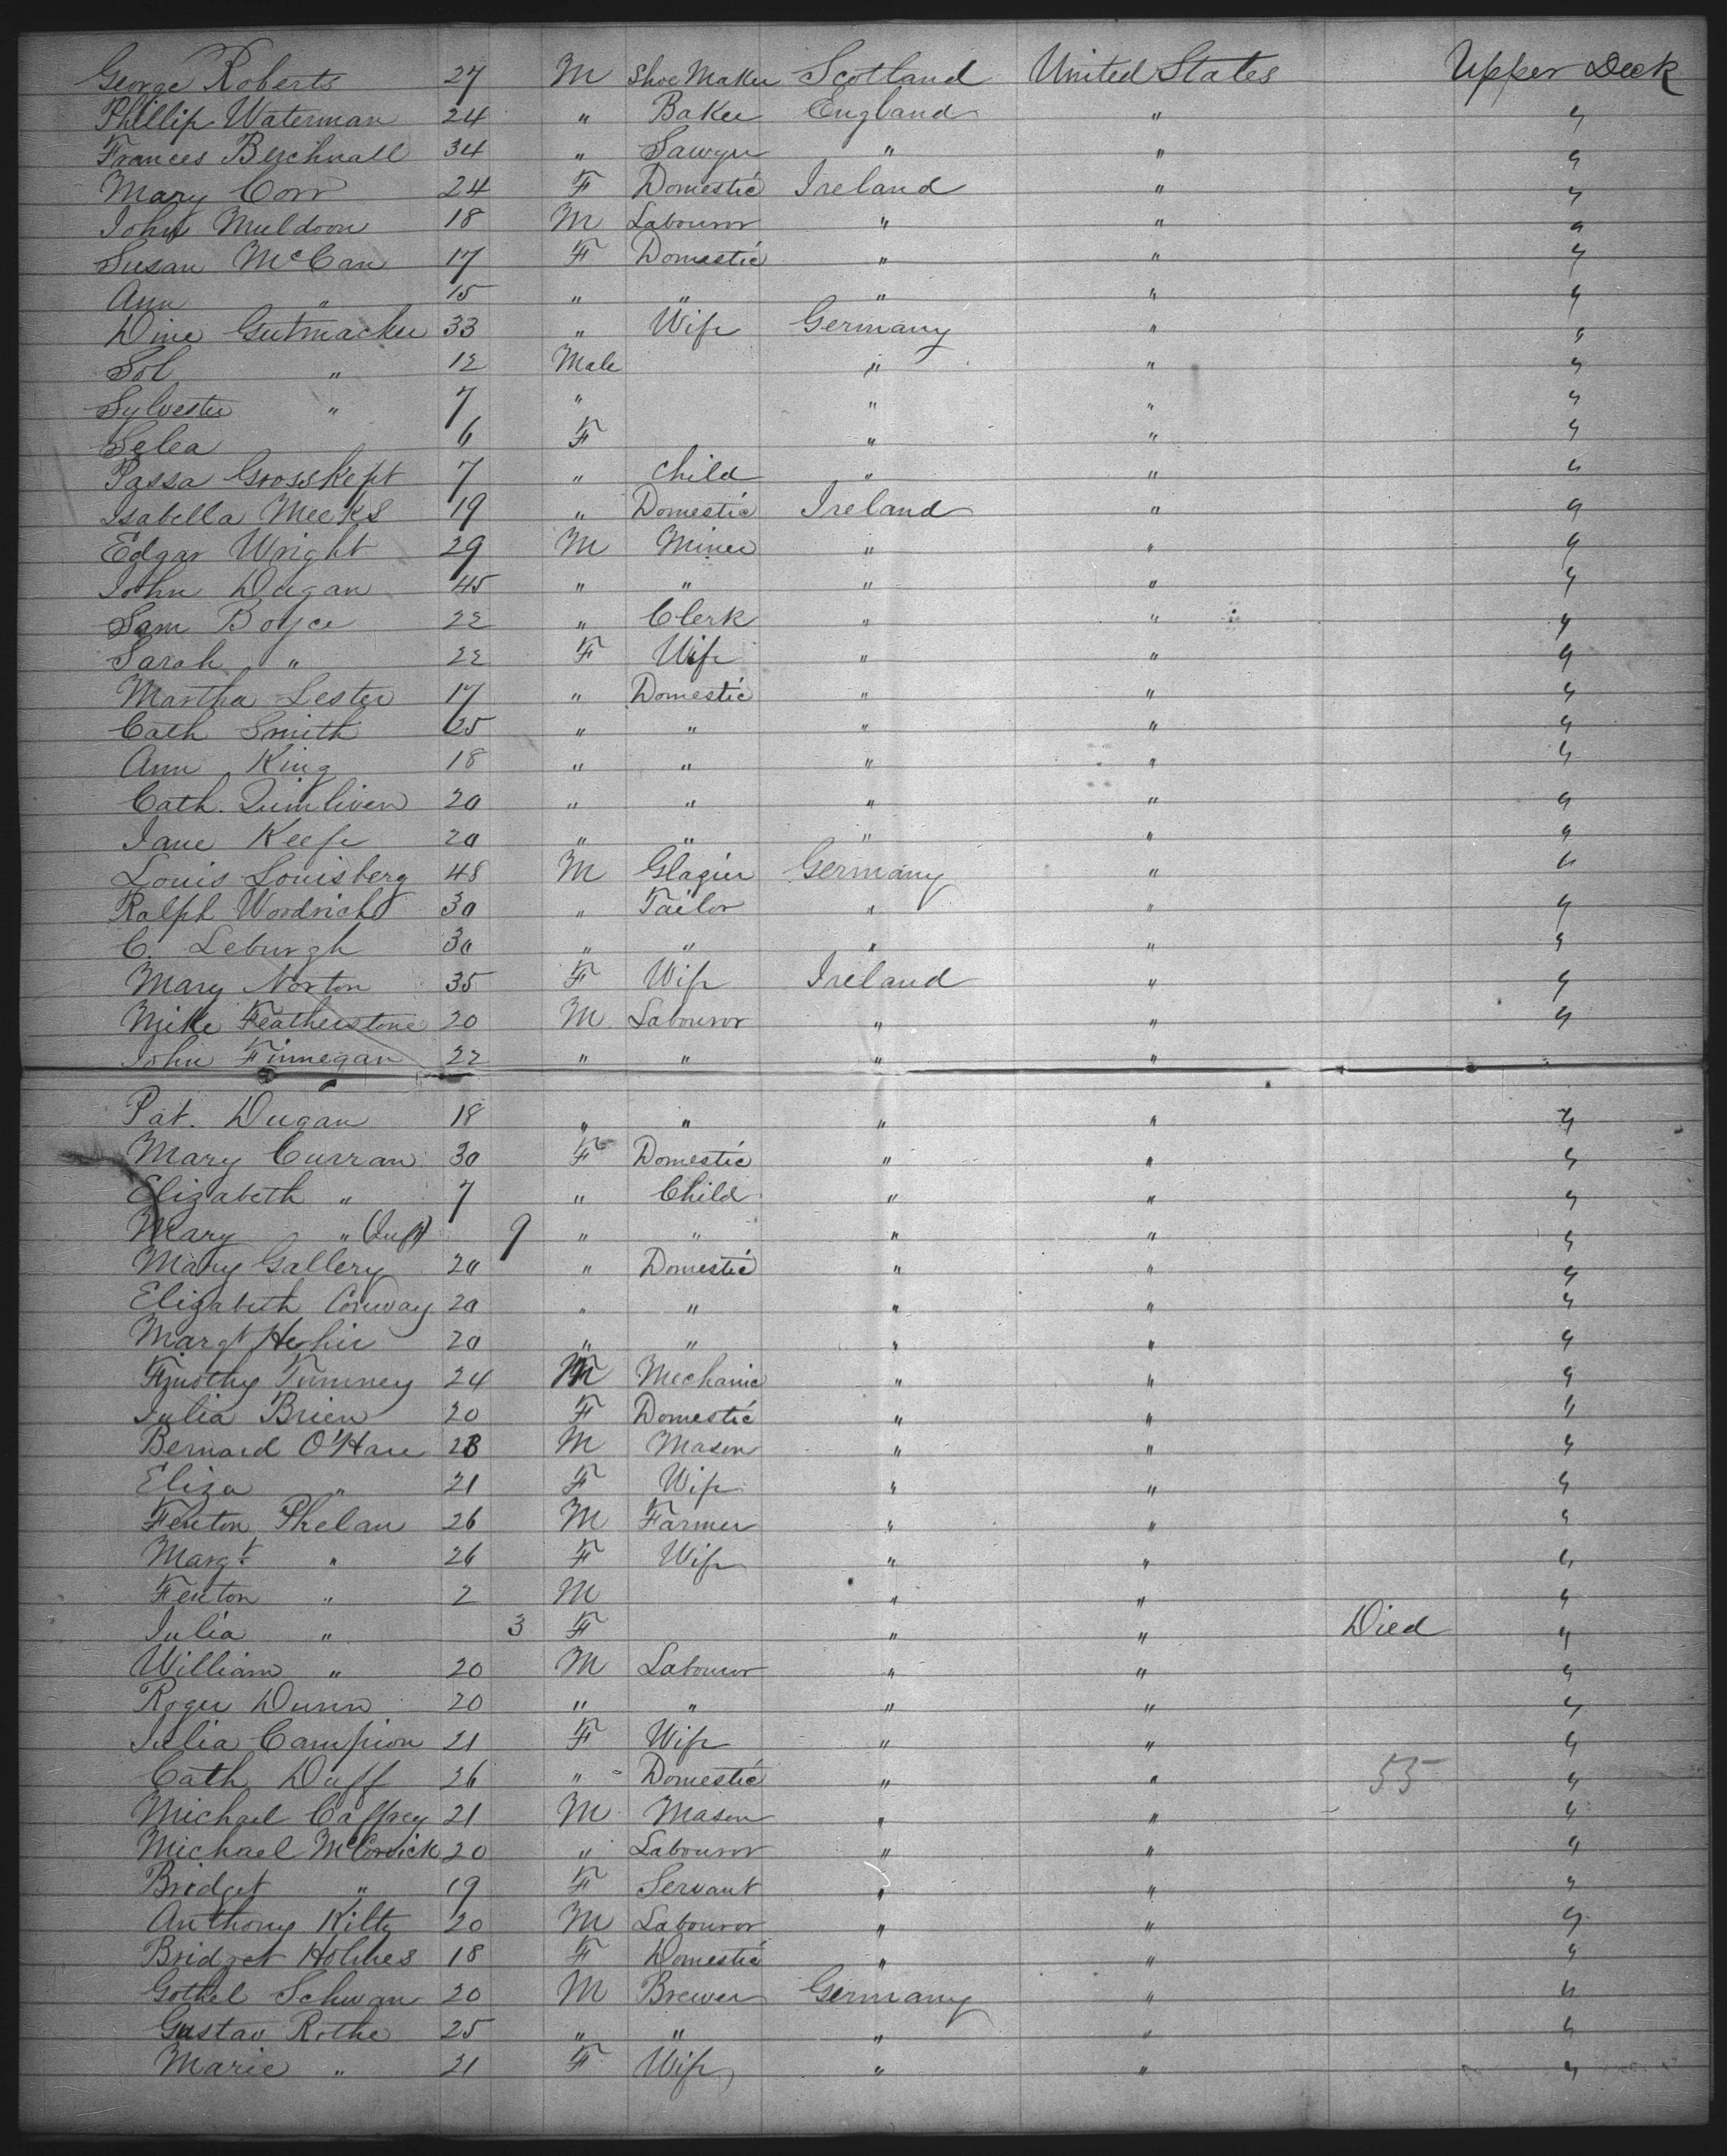 George Roberts 27 M Shoe Maker Scotland United States Upper Deck
Phillip Waterman 24 " Baker England " "
Frances Berchnall 34 " Sawyer " " "
Mary Corr 24 F Domestic Ireland " "
John Muldoon 18 M Labouror " " "
Susan McCan 17 F Domestic " " "
Ann " 15 " " " " "
Dine Gutmacher 33 " Wife Germany " "
Sol " 12 Male " " "
Sylvester " 7 " " " "
Selea 6 F " " "
Passa Grosskept 7 " Child " " "
Isabella Meeks 19 " Domestic Ireland " "
Edgar Wright 29 M Miner " " "
John Dugan 45 " " " " "
Sam Boyce 22 " Clerk " " "
Sarah " 22 F Wife " " "
Martha Lester 17 " Domestic " " "
Cath Smith 25 " " " " "
Ann King 18 " " " " "
Cath. Quinliven 20 " " " " "
Jane Keefe 20 " " " " "
Louis Louisberg 48 M Glazier Germany " "
Ralph Woodrich 30 " Tailor " " "
C. Leburgh 30 " " " " "
Mary Norton 35 F Wife Ireland " "
Mike Featherstone 20 M Labouror " " "
John Finnegan 22 " " " "
Pat. Dugan 18 " " " " "
Mary Curran 30 F Domestic " " "
Elizabeth " 7 " Child " " "
Mary " (Inft) 9 " " " " "
Mary Gallery 20 " Domestic " " "
Elizabeth Conway 20 " " " " "
Margt Hehir 20 " " " " "
Timothy Tumney 24 M Mechanic " " "
Julia Brien 20 F Domestic " " "
Bernard O'Hare 23 M Mason " " "
Eliza " 21 F Wife " " "
Fenton Phelan 26 M Farmer " " "
Margt " 26 F Wife " " "
Fenton " 2 M " " "
Julia " 3 F " " Died "
William " 20 M Labouror " " "
Roger Dunn 20 " " " " "
Julia Campion 21 F Wife " " "
Cath Duff 26 " Domestic " " 55 "
Michael Caffrey 21 M Mason " " "
Michael McCormick 20 " Labouror " " "
Bridget " 19 F Servant " " "
Anthony Kilty 20 M Labouror " " "
Bridget Holmes 18 F Domestic " " "
Gothel Schwan 20 M Brewer Germany " "
Gustav Rothe 25 " " " " "
Marie " 21 F Wife " " "